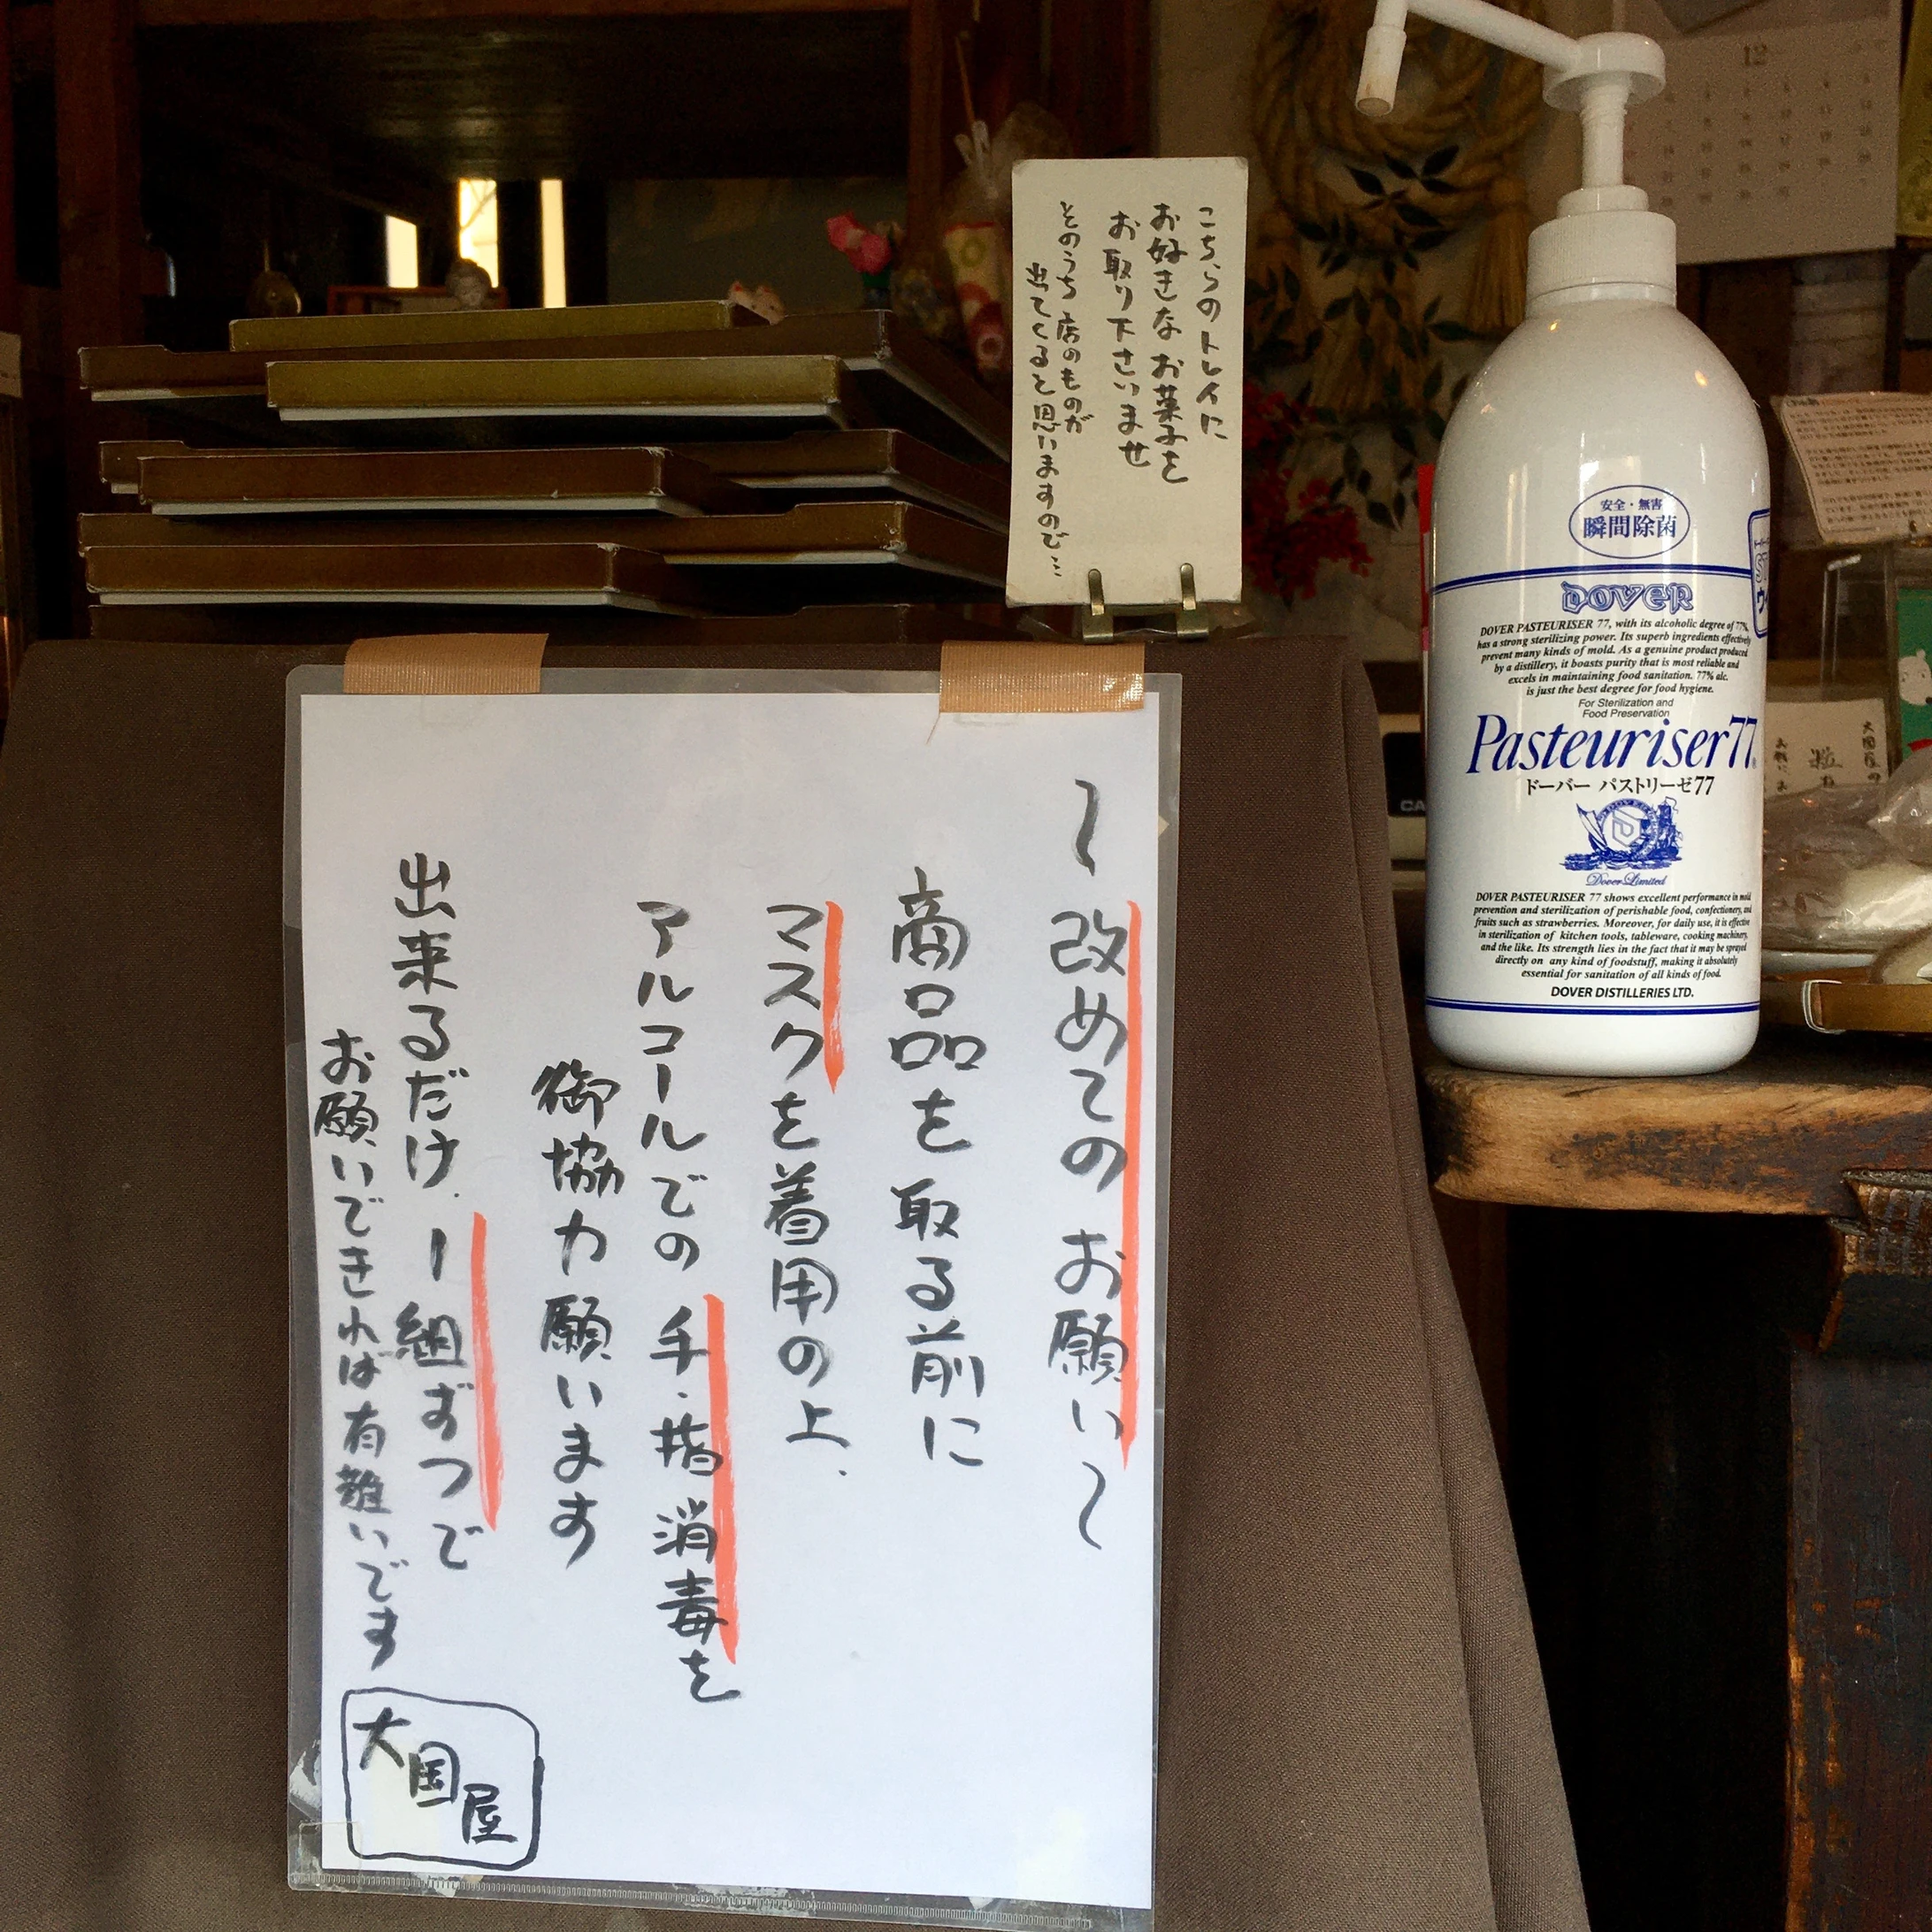 こちらのトレイに
お好きなお菓子を
お取り下さいませ
そのうち店のものが
出てくると思いますので…
〜改めてのお願い〜
商品を取る前に
マスクを着用の上、
アルコールでの手・指消毒を
御協力願います
出来るだけ、1組ずつで
お願いできれば有難いです
大国屋
12
安全・無害
瞬間除菌
DOVER
DOVER PASTEURISER 77, with its alcoholic degree of 77%,
has a strong sterilizing power. Its superb ingredients effectively
prevent many kinds of mold. As a genuine product produced
by a distillery, it boasts purity that is most reliable and
excels in maintaining food sanitation. 77% alc.
is just the best degree for food hygiene.
For Sterilization and
Food Preservation
Pasteuriser77
ドーバー パストリーゼ77
Dover Limited
DOVER PASTEURISER 77 shows excellent performance in mold
prevention and sterilization of perishable food, confectionery, and
fruits such as strawberries. Moreover, for daily use, it is effective
in sterilization of kitchen tools, tableware, cooking machinery,
and the like. Its strength lies in the fact that it may be sprayed
directly on any kind of foodstuff, making it absolutely
essential for sanitation of all kinds of food.
DOVER DISTILLERIES LTD.
CA
大国屋の